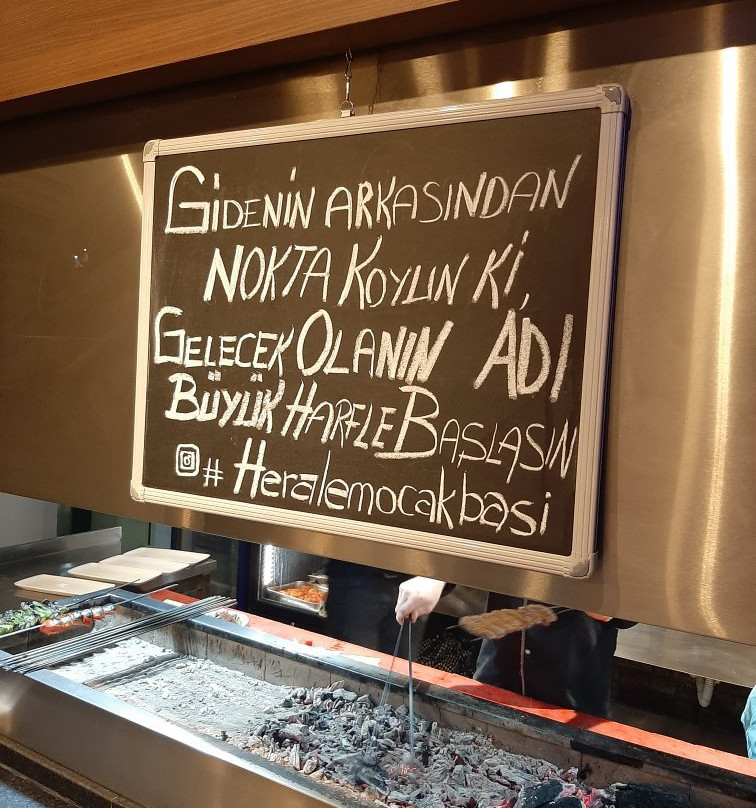 GİDENİN ARKASINDAN
NOKTA KOYUN Kİ,
GELECEK OLANIN ADI
BÜYÜK HARFLE BAŞLASIN
# Heralemocakbasi